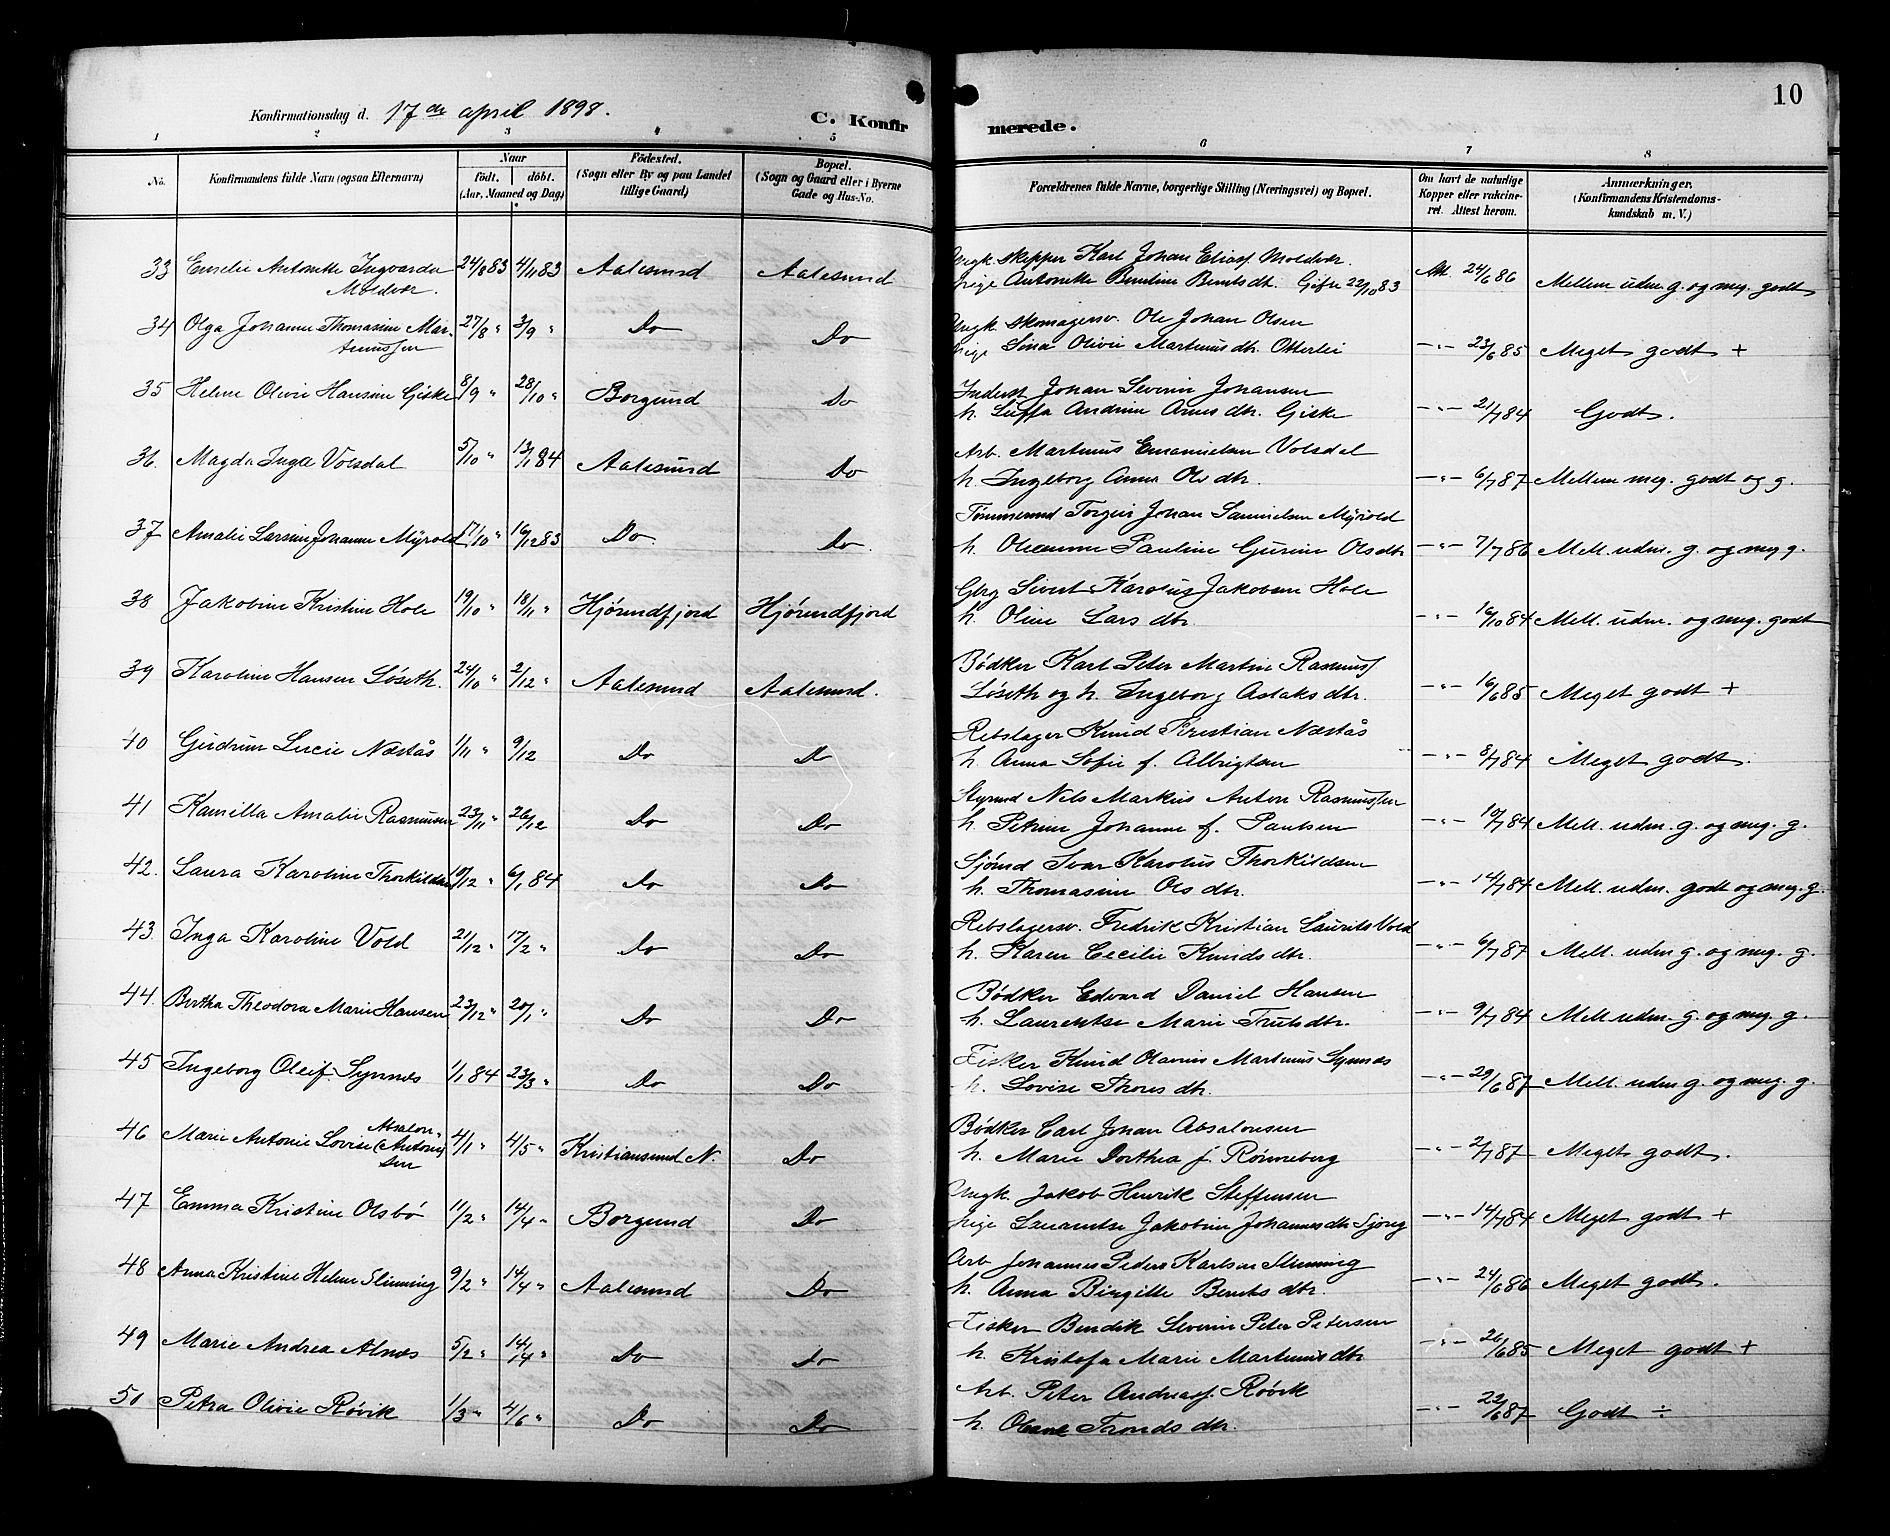 10
Konfirmationsdag d. 17de april 1898.
C. Konfirmerede.
1 2 3 4 5 6 7 8
No. Konfirmandens fulde Navn (ogsaa Efternavn) Naar født. døbt. (Aar, Maaned og Dag) Fødested. (Sogn eller By og paa Landet tillige Gaard) Bopæl. (Sogn og Gaard eller i Byerne Gade og Hus-No. Forældrenes fulde Navne, borgerlige Stilling (Næringsvei) og Bopæl. Om havt de naturlige Kopper eller vakcineret. Attest herom. Anmærkninger. (Konfirmandens Kristendomskundskab m. V.)
33 Emelie Antonette Ingvarda 24/8 83 4/11 83 Aalesund Aalesund Ungk. Skipper Karl Johan Eliass. Moldvær
Moldvær. Pige Antonette Bendine Berntsdt. Gifte 22/10 83 Att. 24/6 86 Mellem udm. g. og meg. godt
34 Olga Johanne Thomasine Mar- 27/8 " 3/9 " Do Do Ungk. Skomagersv. Ole Johan Olsen
tinussen Pige Sina Olivie Martinusdtr. Otterlei -"- 23/6 85 Meget godt +
35 Helene Olivie Hansine Giske 8/9 " 28/10 " Borgund Do Inderst Johan Severin Johansen
h. Andrine dtr. Giske -"- 21/7 84 Godt.
36. Magda Inga Volsdal 5/10 " 13/1 84 Aalesund Do Arb. Martinus Emanuelsen Volsdal
h. Ingeborg Anna Olsdtr. -"- 6/7 87 Mellem meg. godt og g.
37 Amalie Larsine Johanne Myrvold 17/10 " 16/12 83 Do. Do. Tømmermd Torger Johan Samuelsen Myrvold
h. Oleanna Pauline Gurine Olsdtr -"- 7/7 86 Mell. udm. g. og meg g.
38 Jakobine Kristine Hole 19/10 " 18/11 " Hjørundfjord Hjørundfjord Gbrg Sivert Karolus Jakobsen Hole
h. Oline Larsdtr. -"- 16/10 84 Mell. udm. og meg. godt
39 Karoline Hansen Løseth. 24/10 " 2/12 " Aalesund Aalesund. Bødker Karl Peter Martin Rasmuss
Løseth og h. Ingeborg Aslaksdtr. -"- 16/6 85 Meget godt +
40 Gudrun Lucie Næstås 1/11 " 9/12 Do Do Rebslager Knud Kristian Næstås
h. Anna Sofie f. Albrigtsen -"- 8/7 84 Meget godt.
41 Kamilla Amalie Rasmusen 23/11 " 26/12 Do Do Styrmd Nils Markus Anton Rasmussen
h. Petrine Johanne f. Paulsen -"- 10/7 84 Mell. udm. g. og meg. g.
42. Laura Karoline Thorkildsen 10/12 " 6/1 84 Do Do Sjømd Ivar Karolus Thorkildsen
h. Thomasine Olsdtr. -"- 14/7 84 Mell. udm. godt og meg. g.
43. Inga Karoline Vold 21/12 " 17/2 " Do Do Rebslagersv. Fredrik Kristian Laurits Vold
h. Karen Cecilie Knudsdtr. -"- 6/7 87 Mell. udm g. og meg. g.
44. Bertha Theodora Marie Hansen 23/12 " 20/1 " Do Do Bødker Edvard Daniel Hansen
h. Laurentse Marie dtr. -"- 9/7 84 Mell udm. g. og meg. g.
45 Ingeborg Synnes 1/1 84 23/3 " Do Do Fisker Knud Olavus Martinus Synnes
h. Lovise Thoresdtr. -"- 29/6 87 Mell. udm g. og meg. g.
46 Marie Antonie Lovise Absalon- (Antoni)sen 4/1 " 4/5 " Kristiansund N. Do Bødker Carl Johan Absalonsen
h. Marie Dorthea f. Rønneberg -"- 2/7 87 Meget godt.
47 Emma Kristine Olsbø 11/2 " 14/4 " Borgund Do Ungk. Jakob Henrik Steffensen
Pige Jakobine Johannesdtr -"- 14/7 84 Meget godt +
48 Anna Kristine Helene Slinning 9/2 " 14/4 " Aalesund Do Arb Johannes Peder Karlsen Slinning
h. Anna Birgitte Berntsdtr. -"- 24/6 86 Meget godt.
49 Marie Andrea Alnæs 5/2 " 14/4 " Do Do Fisker Bendik Severin Peter Petersen
h. Kristofa Marie Martinusdtr -"- 26/6 85 Meget godt +
50 Petra Olivie Røvik 1/3 " 4/6 " Do Do Arb. Peter Andreass. Røvik
h. Trondsdtr. -"- 22/6 87 Godt ÷